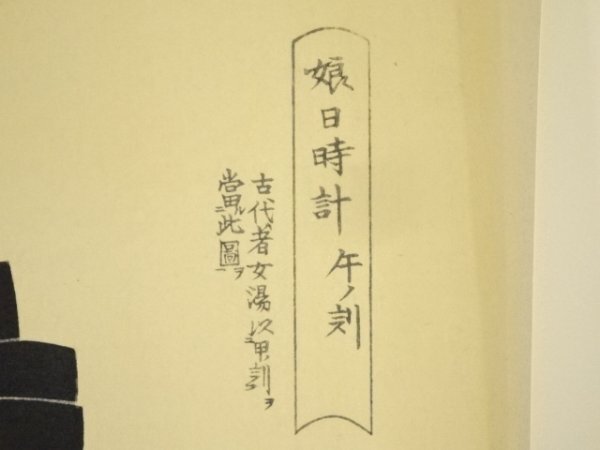 娘日時計 午ノ刻
古代者女湯以
當此圖ヲ